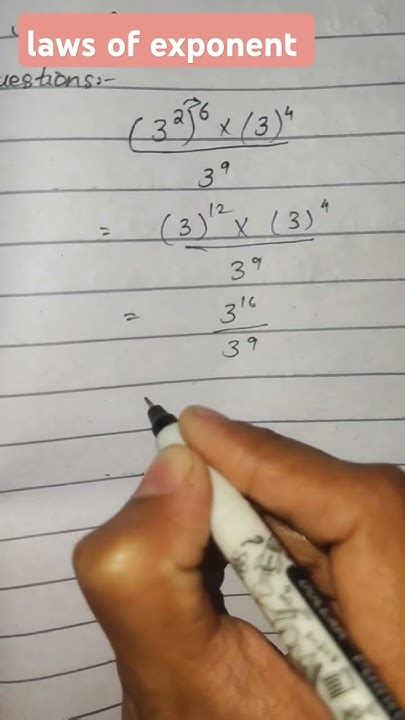 laws of exponent
uestions:-
(3²)⁶ × (3)⁴
3⁹
= (3)¹² × (3)⁴
3⁹
= 3¹⁶
3⁹